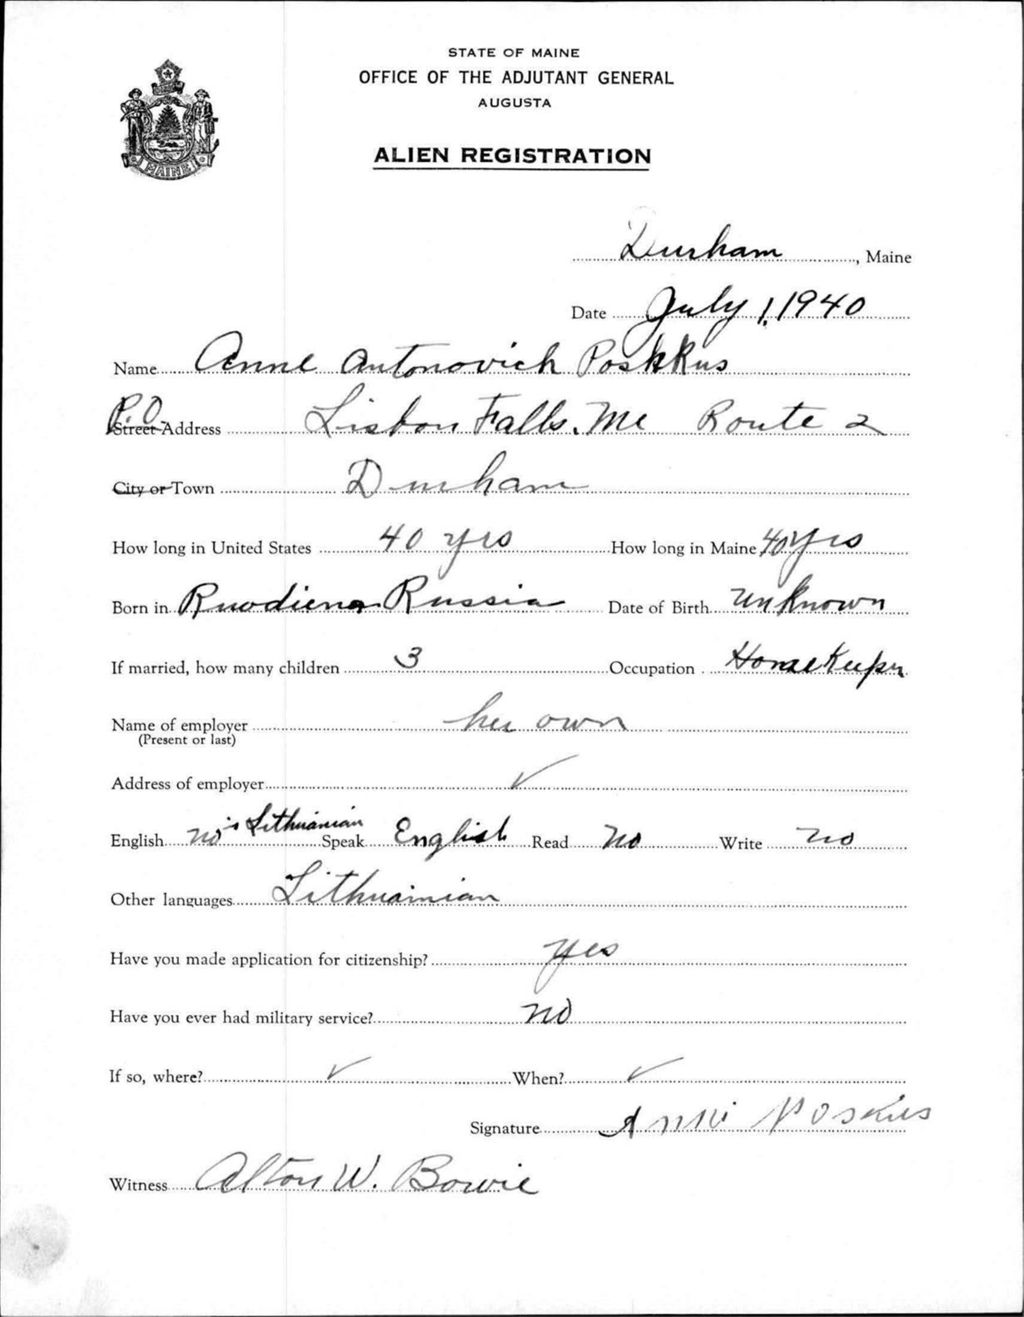 STATE OF MAINE
OFFICE OF THE ADJUTANT GENERAL
AUGUSTA
MAINE
ALIEN REGISTRATION
Durham, Maine
Date July 1, 1940
Name Anne Antonovich Poshkus
P.O. Street Address Lisbon Falls, Me Route 2
City or Town Durham
How long in United States 40 yrs How long in Maine 40 yrs
Born in Russia Date of Birth Unknown
If married, how many children 3 Occupation Homekeeper
Name of employer her own
(Present or last)
Address of employer ✓
English no Lithuanian Speak English Read No Write no
Other languages Lithuainian
Have you made application for citizenship? yes
Have you ever had military service? no
If so, where? ✓ When? ✓
Signature Anni Poskus
Witness Alton W. Bowie